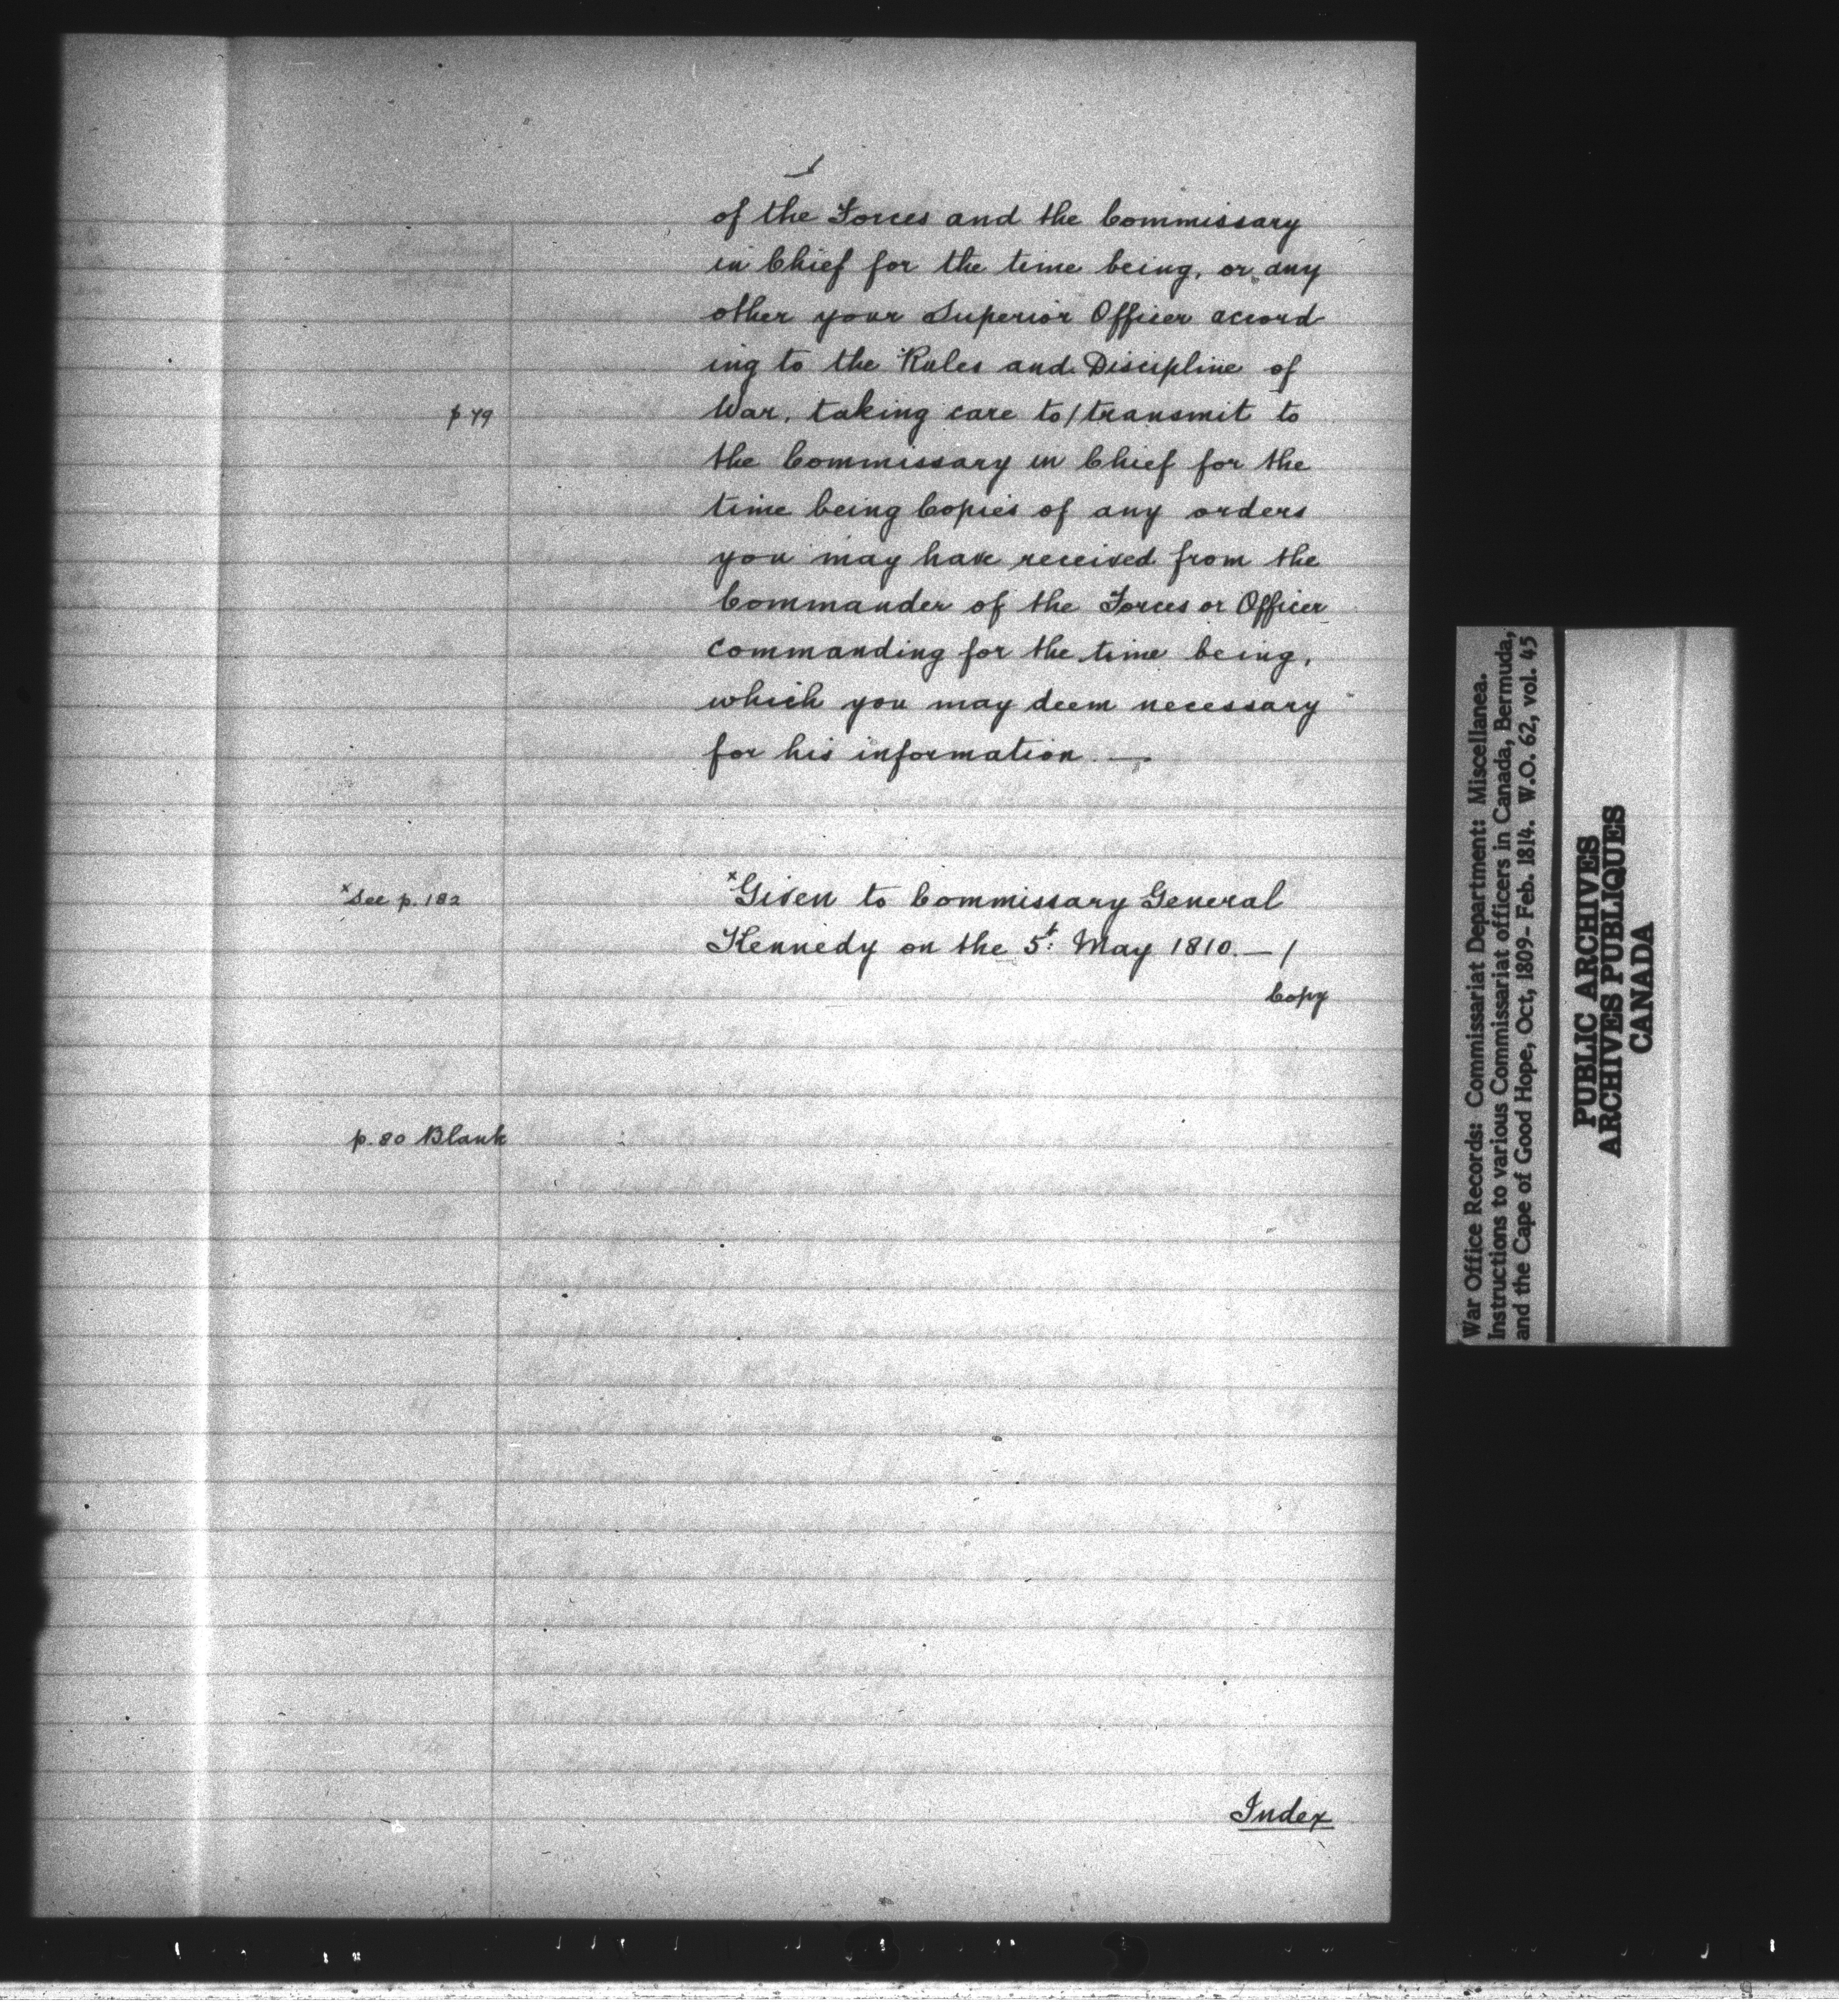 of the Forces and the Commissary
in Chief for the time being, or any
other your Superior Officer accord
ing to the Rules and Discipline of
p 79
War, taking care to/transmit to
the Commissary in Chief for the
time being Copies of any orders
you may have received from the
Commander of the Forces or Officer
Commanding for the time being,
which you may deem necessary
for his information. —.
x See p. 182
x Given to Commissary General
Kennedy on the 5t: May 1810. — /
Copy
p. 80 Blank
Index
War Office Records: Commissariat Department: Miscellanea.
Instructions to various Commissariat officers in Canada, Bermuda,
and the Cape of Good Hope, Oct, 1809- Feb. 1814. W.O. 62, vol. 45
PUBLIC ARCHIVES
ARCHIVES PUBLIQUES
CANADA